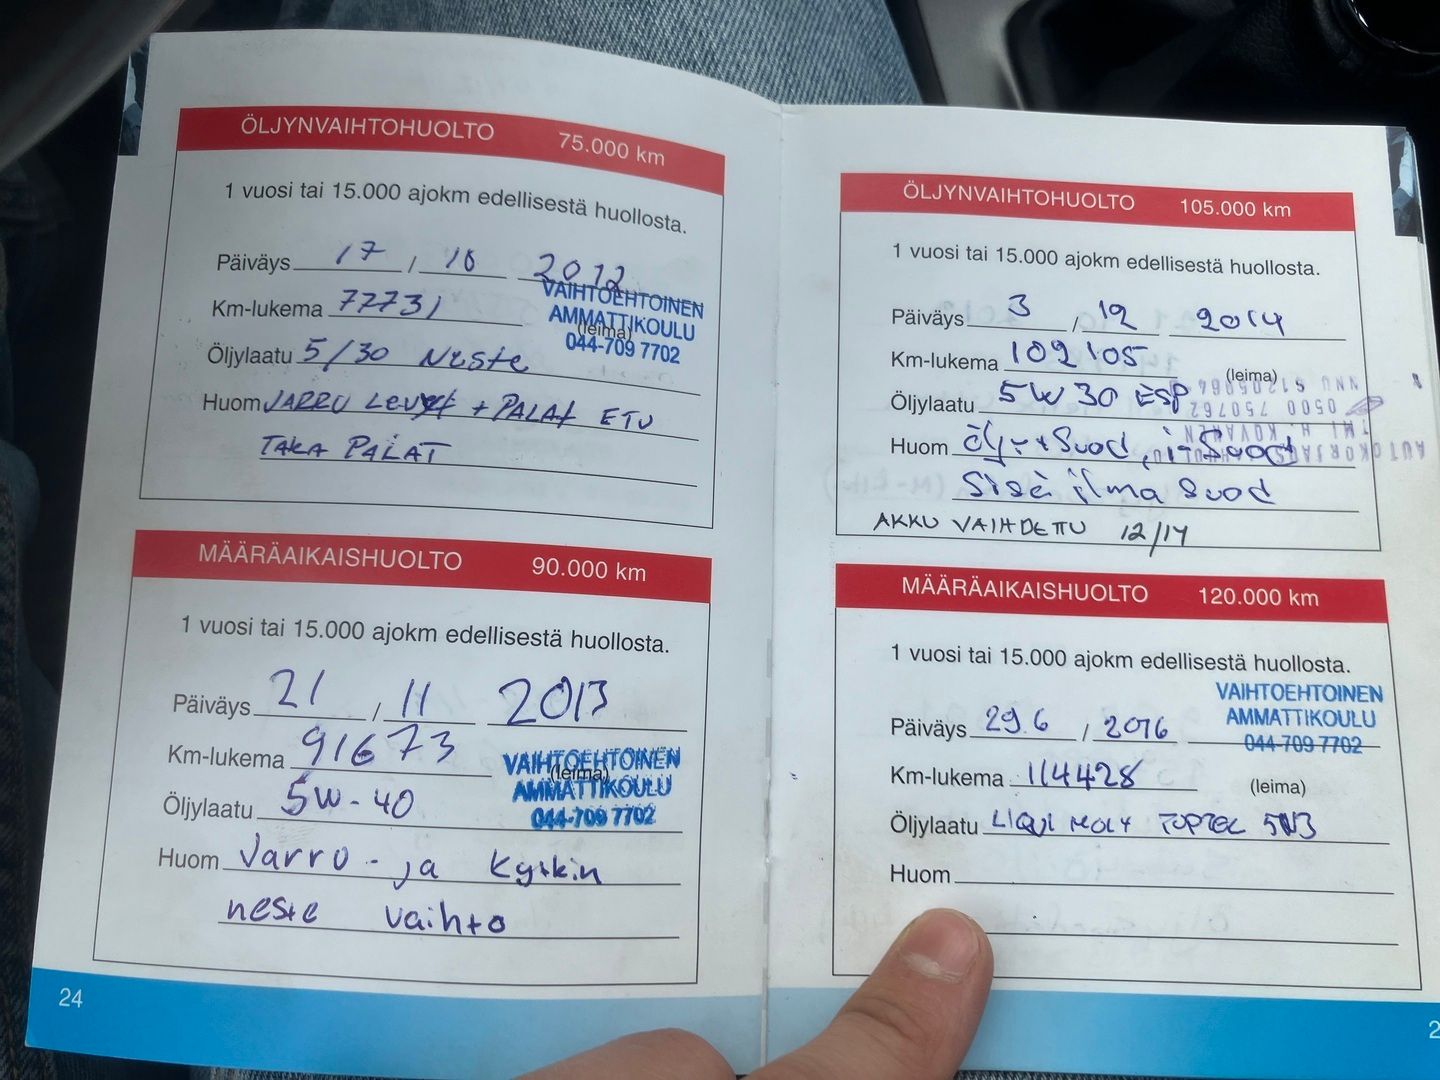 ÖLJYNVAIHTOHUOLTO 75.000 km
1 vuosi tai 15.000 ajokm edellisestä huollosta.
Päiväys 17 / 10 2012
VAIHTOEHTOINEN
Km-lukema 77731
AMMATTIKOULU
(leima)
044-709 7702
Öljylaatu 5/30 Neste
Huom JARRU LEVYt + PALAt ETU
TAKA PALAT
MÄÄRÄAIKAISHUOLTO 90.000 km
1 vuosi tai 15.000 ajokm edellisestä huollosta.
Päiväys 21 / 11 2013
Km-lukema 91673
VAIHTOEHTOINEN
(leima)
AMMATTIKOULU
044-709 7702
Öljylaatu 5W-40
Huom Jarru- ja Kytkin
neste vaihto
24
ÖLJYNVAIHTOHUOLTO 105.000 km
1 vuosi tai 15.000 ajokm edellisestä huollosta.
Päiväys 3 / 12 2014
Km-lukema 102105
(leima)
Öljylaatu 5W30 ESP
0500 750762
TMI H. KOVANEN
Huom Öljy + Suod, i-Suod
Sisä ilma Suod
AKKU VAIHDETTU 12/14
MÄÄRÄAIKAISHUOLTO 120.000 km
1 vuosi tai 15.000 ajokm edellisestä huollosta.
VAIHTOEHTOINEN
AMMATTIKOULU
044-709 7702
Päiväys 29.6 / 2016
Km-lukema 114428
(leima)
Öljylaatu LIQUI MOLY TOPTEC
Huom